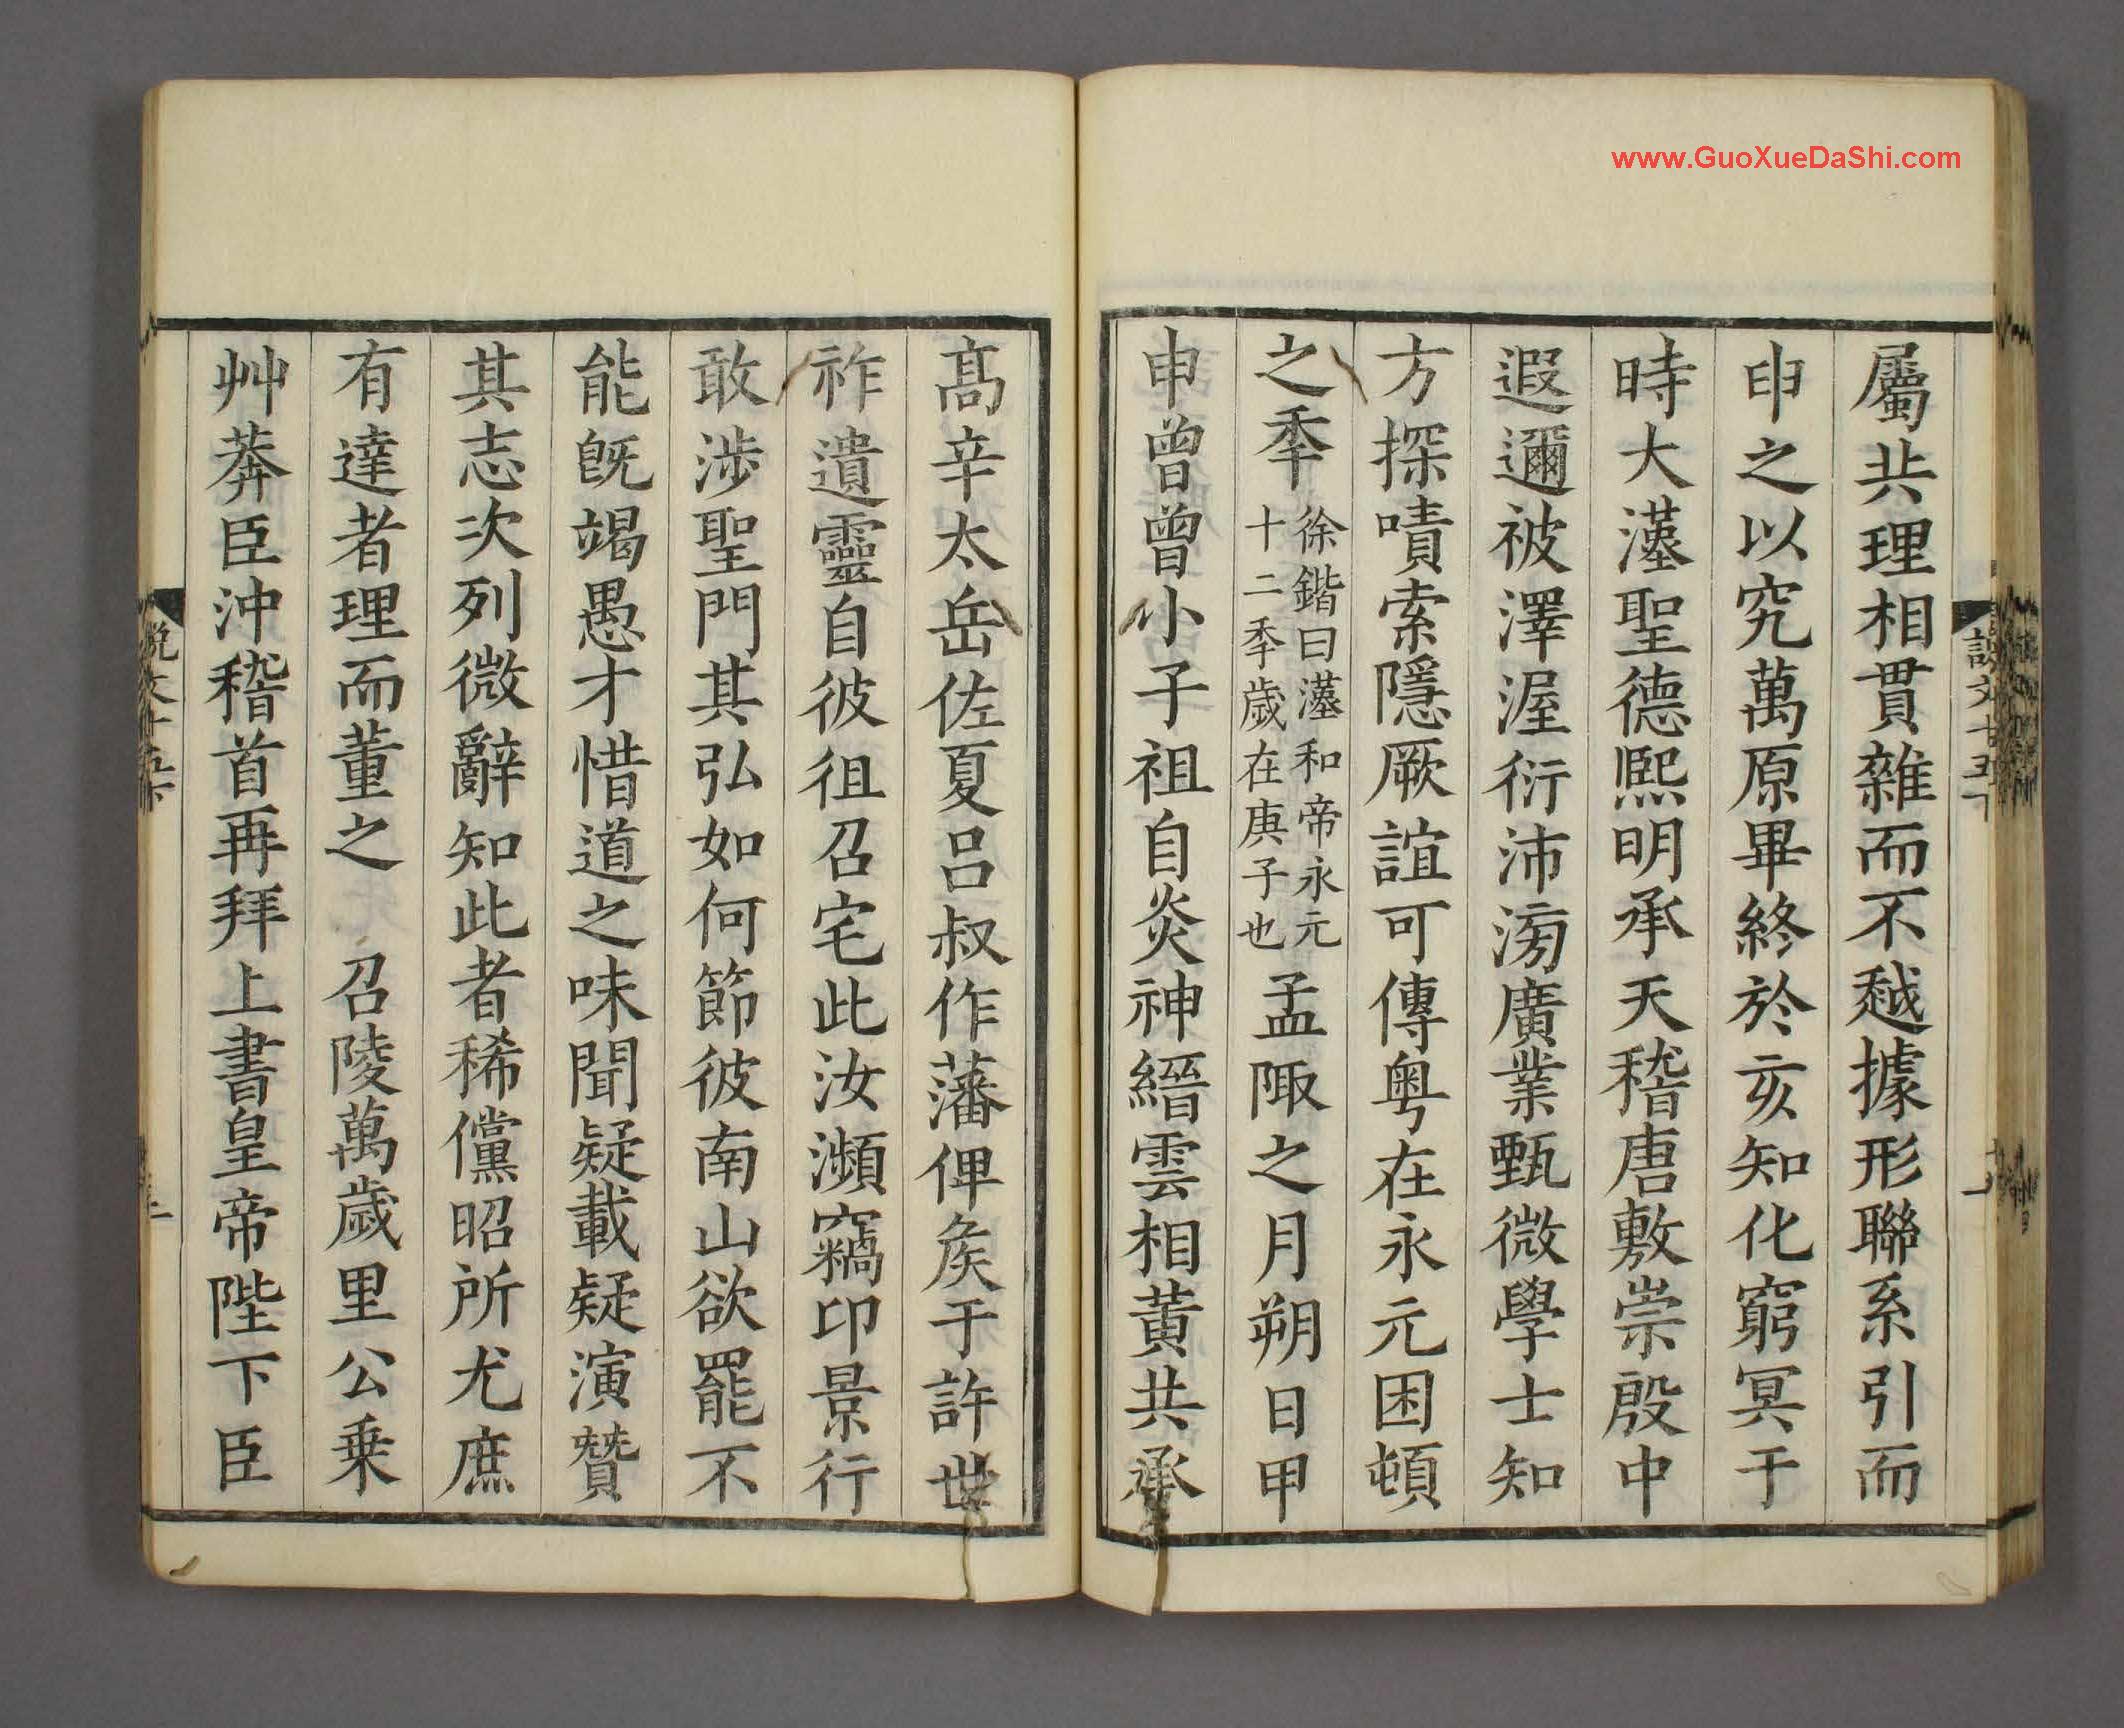 www.GuoXueDaShi.com
說文十五下
屬共理相貫雜而不越據形聯系引而
申之以究萬原畢終於亥知化窮冥于
時大漢聖德熙明承天稽唐敷崇殷中
遐邇被澤渥衍沛滂廣業甄微學士知
方探嘖索隱厥誼可傳粤在永元困頓
之秊
徐鍇曰漢和帝永元
十二秊歲在庚子也
孟陬之月朔日甲
申曾曾小子祖自炎神縉雲相黃共承
高辛太岳佐夏呂叔作藩俾矦于許世
祚遺靈自彼徂召宅此汝瀕竊卬景行
敢涉聖門其弘如何節彼南山欲罷不
能旣竭愚才惜道之味聞疑載疑演贊
其志次列微辭知此者稀儻昭所尤庶
有達者理而董之　召陵萬歲里公乗
艸莽臣沖稽首再拜上書皇帝陛下臣
說文十五下